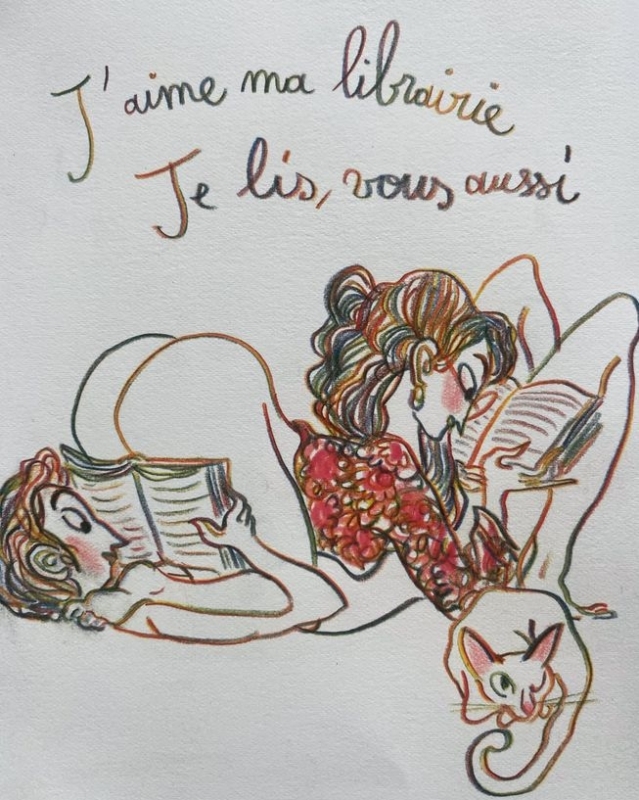 J'aime ma librairie
Je lis, vous aussi